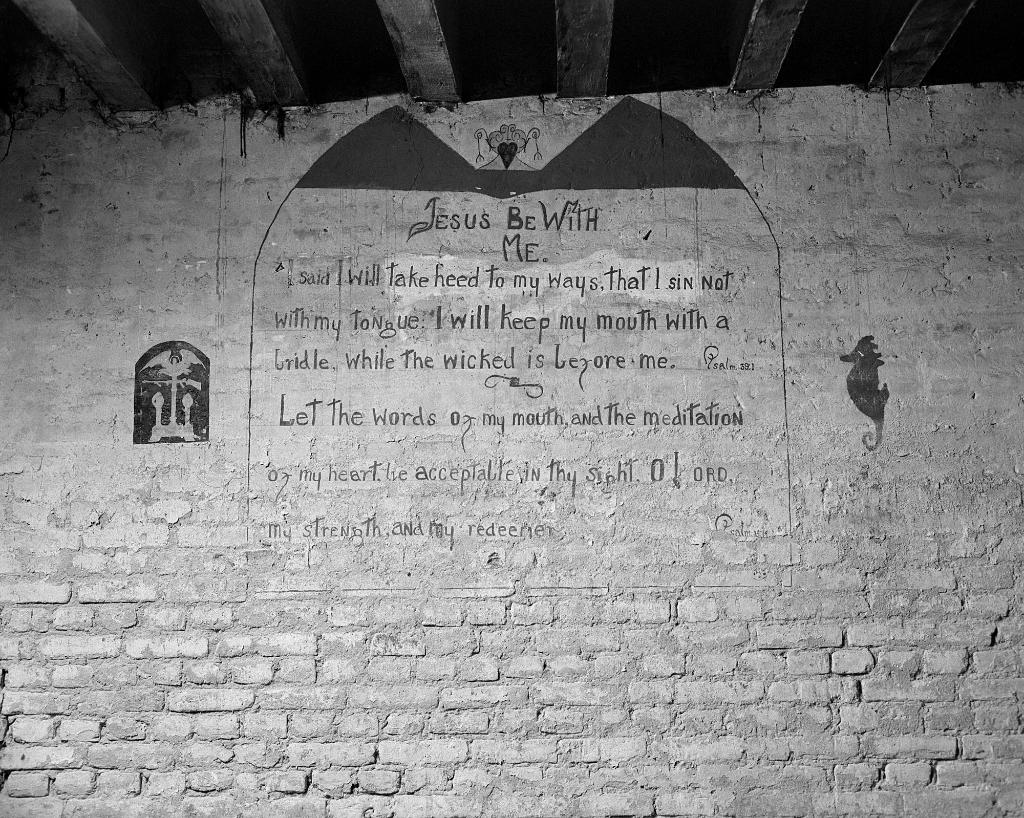 JESUS BE WITH
ME.
"I said I will take heed to my ways, that I SIN NOT
with my tongue: I will keep my mouth with a
bridle, while the wicked is before me. Psalm. 39:1
Let the words of my mouth, and the meditation
of my heart, be acceptable, in thy sight. O! LORD,
my strength, and my redeemer. Psalm